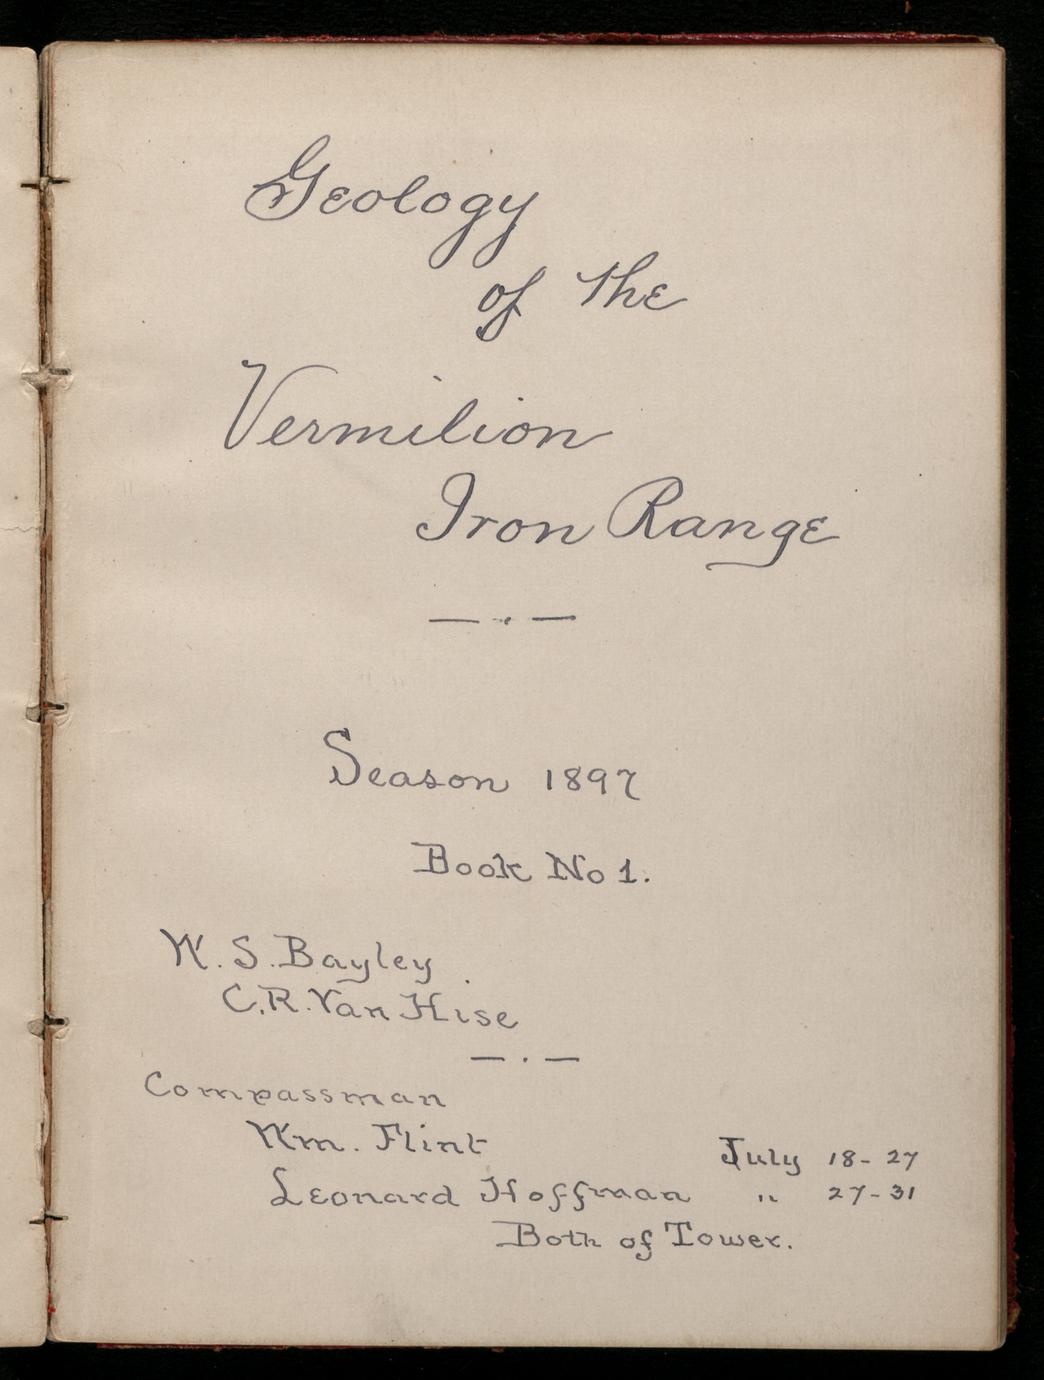 Geology
of the
Vermilion
Iron Range
Season 1897
Book No 1.
W. S. Bayley
C. R. Van Hise
Compassman
Wm. Flint July 18-27
Leonard Hoffman " 27-31
Both of Tower.